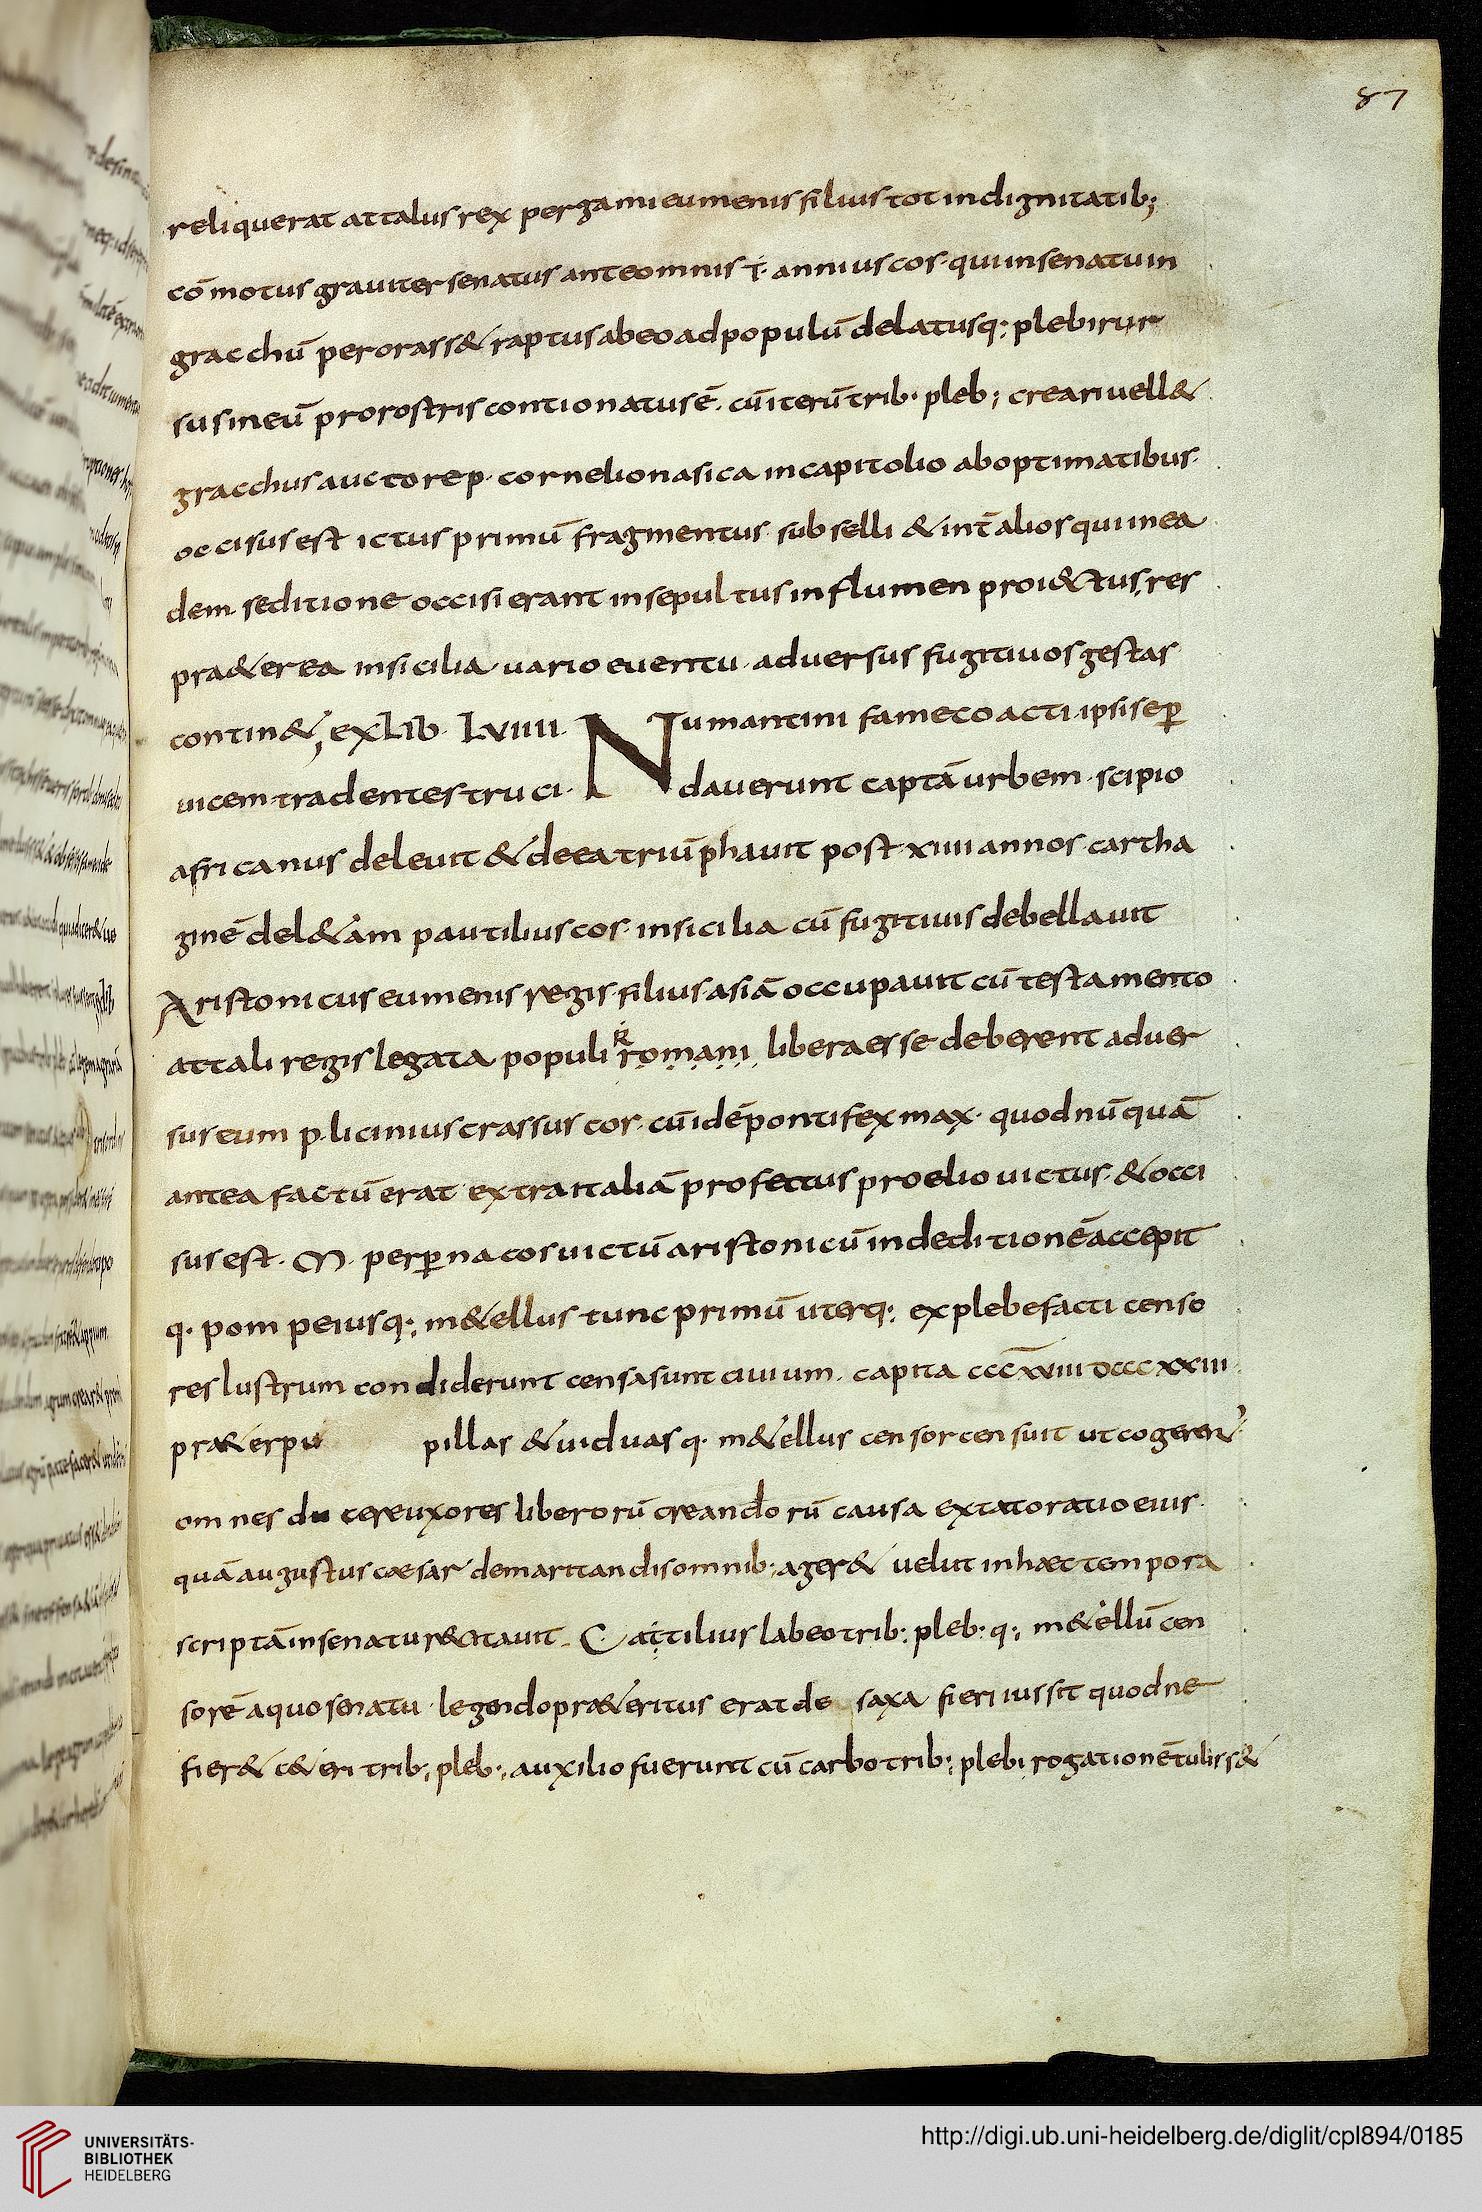 87
reliquerat attalus rex pergami eumenis filius tot indignitatib;
cōmotus grauiter senatus ante omnis t̄· annius cos· qui insenatuin
gracchū perorass& raptus abeo adpopulū delatusq; plebi rur
sus ineū prorostris contionatus ē· cū iterū trib· pleb; creari uell&
gracchus auctore p· cornelio nasica incapitolio aboptimatibus·
occisus est ictus primū fragmentus· subselli & int̄ alios qui inea
dem seditione occisi erant insepultus in flumen proi&ctus, res
pra&erea insicilia uario euentu· aduersus fugitiuos gestas
contin&, exLib· LVIIII· Numantini fame coacti ipsi se per
uicem tradentes truci· dauerunt captā urbem· scipio
africanus deleuit & de ea triūphauit post xiiii annos cartha
ginē del&ām p autilius cos· insicilia cū fugitiuis debellauit
Aristonicus eumenis regis· filius· asiā occupauit cū testamento
attali regis legata populi romani liberae esse deberent aduer
sus eum p· licinius crassus cos· cū idē pontifex max· quod nū quā
antea factū erat extra italiā profectus proelio uictus· & occi
sus est· M· perperna cos uictū aristonicū indeditionē accepit
q· pompeiusq; m&ellus tunc primū uterq; explebe facti censo
res lustrum condiderunt censa sunt ciuium· capita cccxxiiii dccc xxiii·
pra&er pu pillas & uiduas q· m&ellus censor censuit ut cogeren̄
omnes ducere uxores liberorū creandorū causa extat oratio eius·
quā augustus caesar demaritandis omnib; ager& uelut inhaec tempora
scriptā insenatu r&citauit· C· attilius labeo trib; pleb; q; m&ellū cen
sorē aquo senatu· legendo pra&eritus erat de saxa fieri iussit quod ne
fier& c&eri trib; pleb; auxilio fuerunt cū carbo trib; plebi rogationē tuliss&
UNIVERSITÄTS-
BIBLIOTHEK
HEIDELBERG
http://digi.ub.uni-heidelberg.de/diglit/cpl894/0185